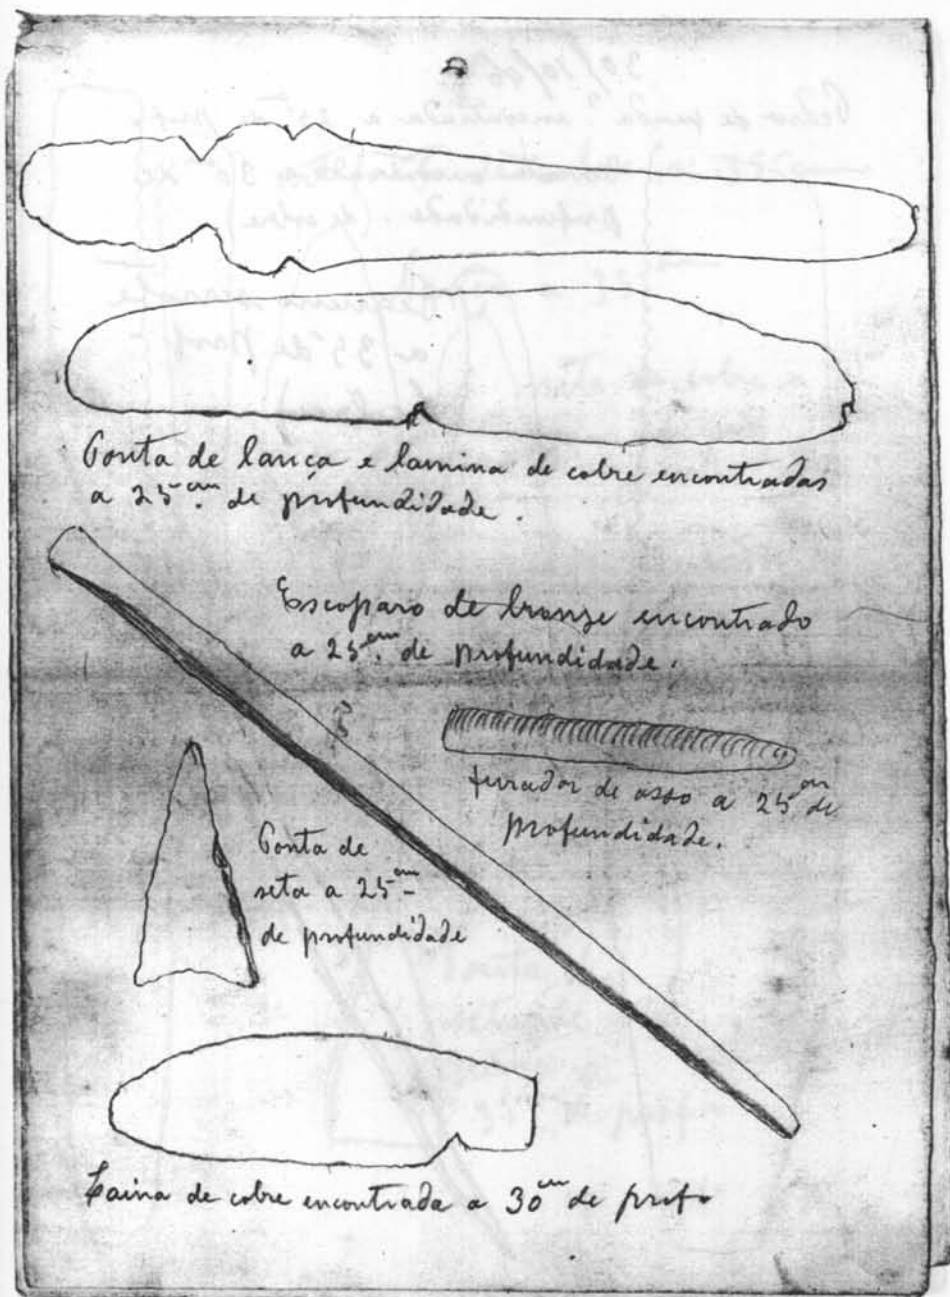 Ponta de lança e lamina de cobre encontradas
a 25cm. de profundidade.
Escoparo de bronze encontrado
a 25cm. de profundidade.
furador de osso a 25cm de
profundidade.
Ponta de
seta a 25cm
de profundidade
de cobre encontrada a 30cm de prof.